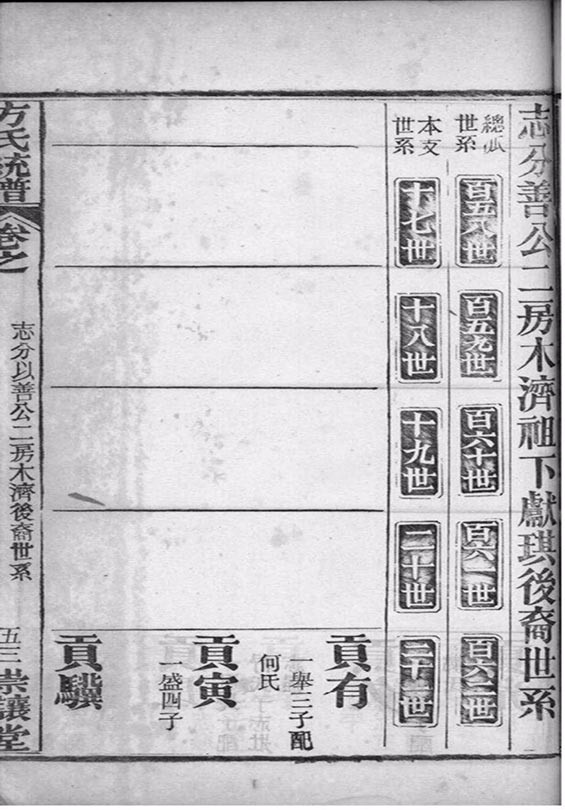 志分善公二房木濟祖下獻琪後裔世系
總派世系
百五八世
百五九世
百六十世
百六一世
百六二世
本支世系
十七世
十八世
十九世
二十世
二十一世
貢有
一舉三子配
何氏
貢寅
一盛四子
貢驥
方氏統譜
卷之
志分以善公二房木濟後裔世系
五三
崇讓堂